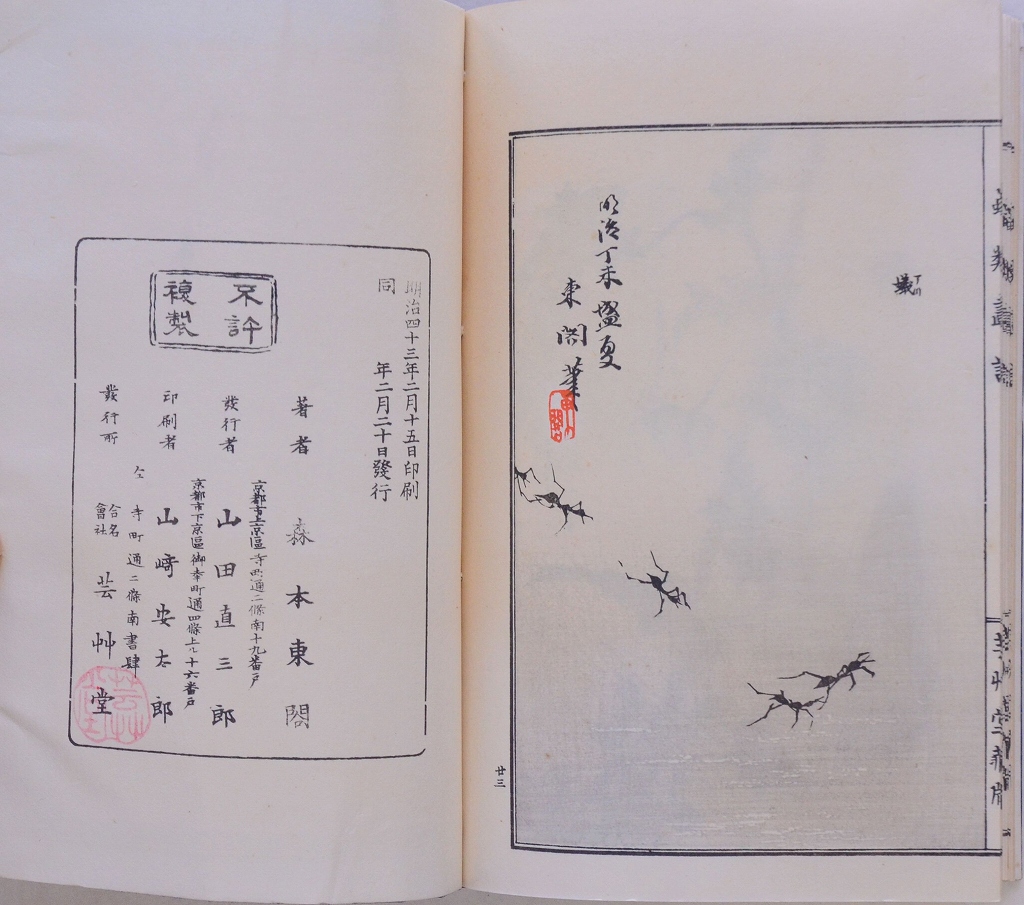 蟻
明治丁未盛夏
東閣筆
廿三
明治四十三年二月十五日印刷
同年二月二十日發行
不許
複製
著者 森本東閣
京都市上京區寺町通二條南十九番戸
發行者 山田直三郎
京都市下京區御幸町通四條上ル十六番戸
印刷者 山﨑安太郎
仝寺町通二條南書肆
發行所 合名會社 芸艸堂